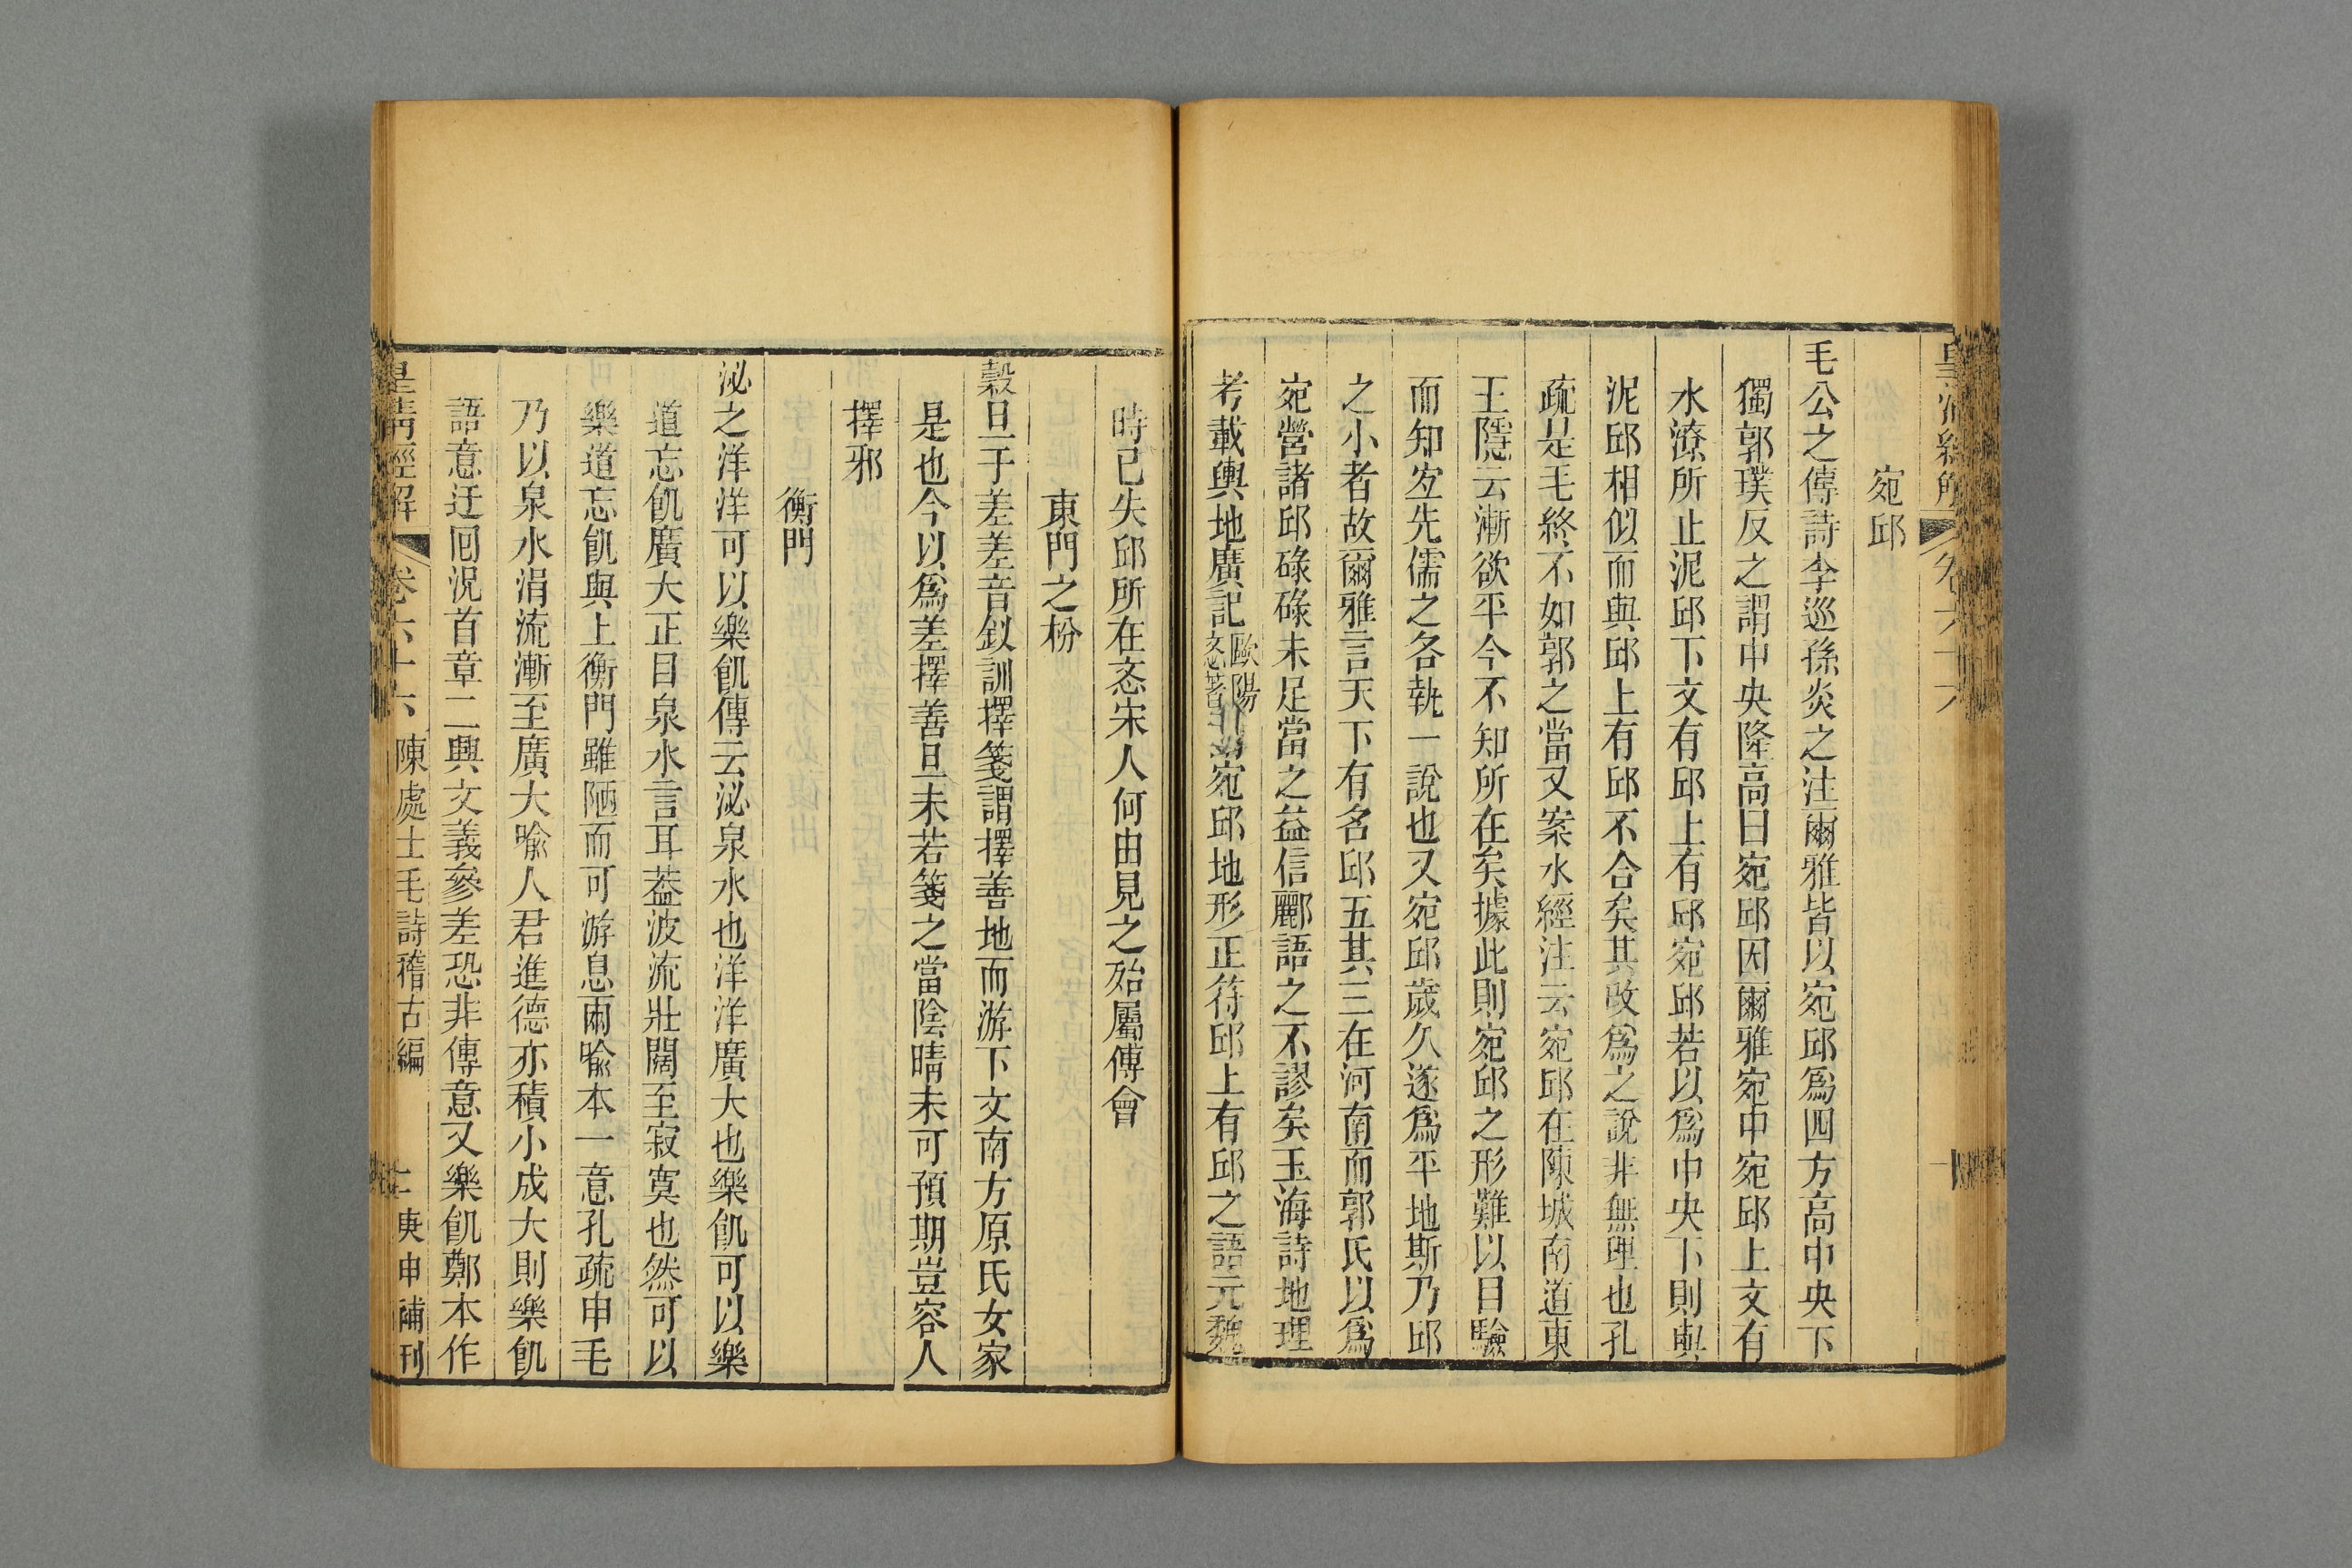 皇清經解 卷六十六
宛邱
毛公之傳詩李巡孫炎之注爾雅皆以宛邱爲四方高中央下
獨郭璞反之謂中央隆高曰宛邱因爾雅宛中宛邱上文有
水潦所止泥邱下文有邱上有邱宛邱若以爲中央下則與
泥邱相似而與邱上有邱不合矣其改爲之說非無理也孔
疏是毛終不如郭之當又案水經注云宛邱在陳城南道東
王隱云漸欲平今不知所在矣據此則宛邱之形難以目驗
而知宐先儒之各執一說也又宛邱歲久遂爲平地斯乃邱
之小者故爾雅言天下有名邱五其三在河南而郭氏以爲
宛營諸邱碌碌未足當之益信酈語之不謬矣玉海詩地理
考載輿地廣記歐陽忞著宛邱地形正符邱上有邱之語元魏
時已失邱所在忞宋人何由見之殆屬傅會
東門之枌
榖旦于差差音釵訓擇箋謂擇善地而游下文南方原氏女家
是也今以爲差擇善旦未若箋之當陰晴未可預期豈容人
擇邪
衡門
泌之洋洋可以樂飢傳云泌泉水也洋洋廣大也樂飢可以樂
道忘飢廣大正目泉水言耳葢波流壯闊至寂寞也然可以
樂道忘飢與上衡門雖陋而可游息兩喻本一意孔疏申毛
乃以泉水涓流漸至廣大喻人君進德亦積小成大則樂飢
語意迂囘況首章二興文義參差恐非傳意又樂飢鄭本作
皇清經解 卷六十六 陳處士毛詩稽古編 二 庚申補刊